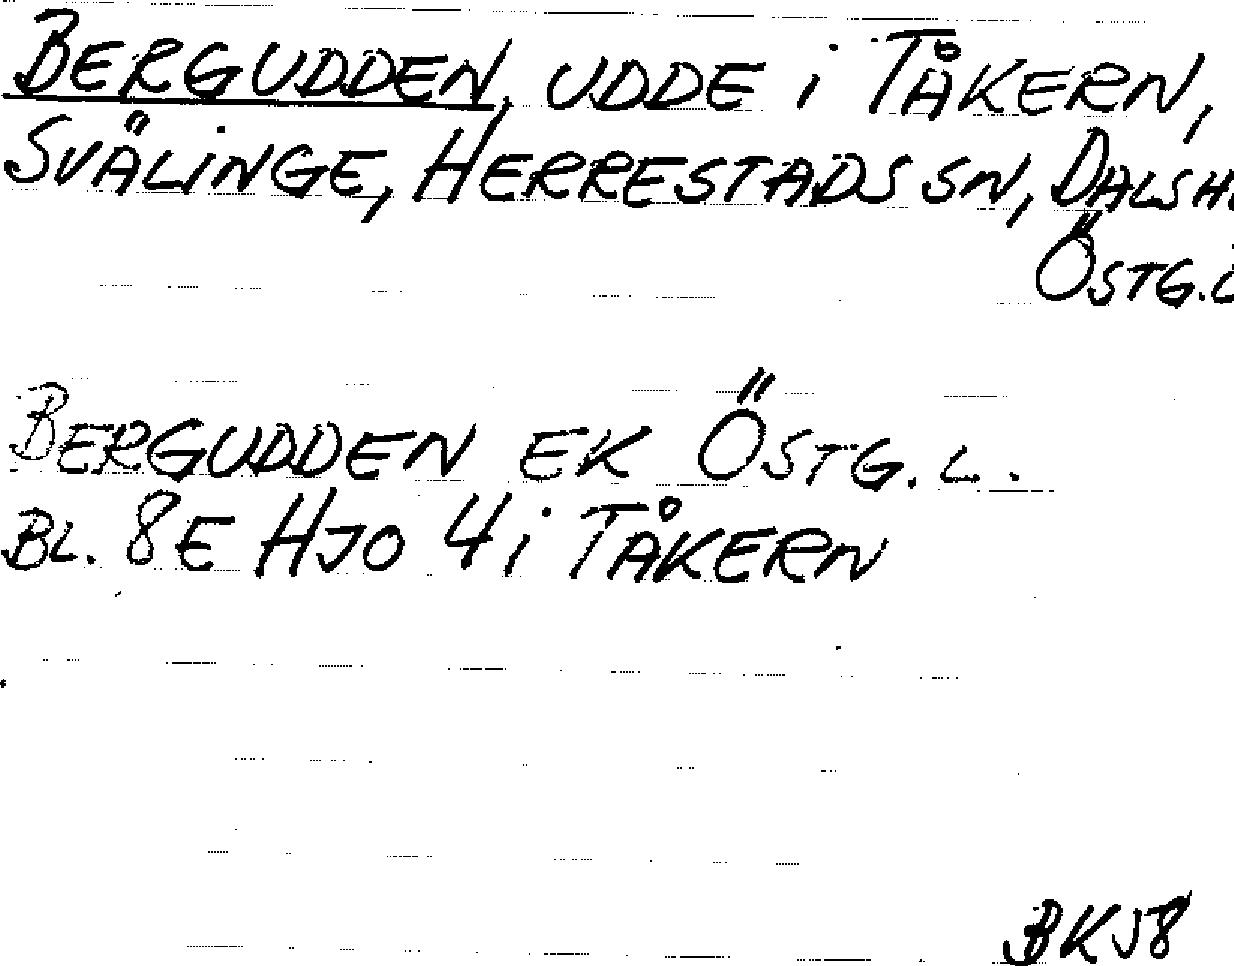 BERGUDDEN, UDDE i TÅKERN,
SVÄLINGE, HERRESTADS SN, DALS H
ÖSTG.L
BERGUDDEN EK ÖSTG. L.
BL. 8E HJO 4i TÅKERN
BKJ8